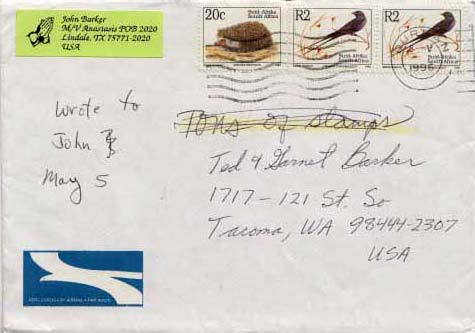 John Barker
M/V Anastasis POB 2020
Lindale, TX 75771-2020
USA
20c
Suid-Afrika
South Africa
R2
Suid-Afrika
South Africa
R2
Suid-Afrika
South Africa
1996
Wrote to
John
May 5
Tons of stamps
Ted & Garnet Barker
1717-121 St. So
Tacoma, WA 98444-2307
USA